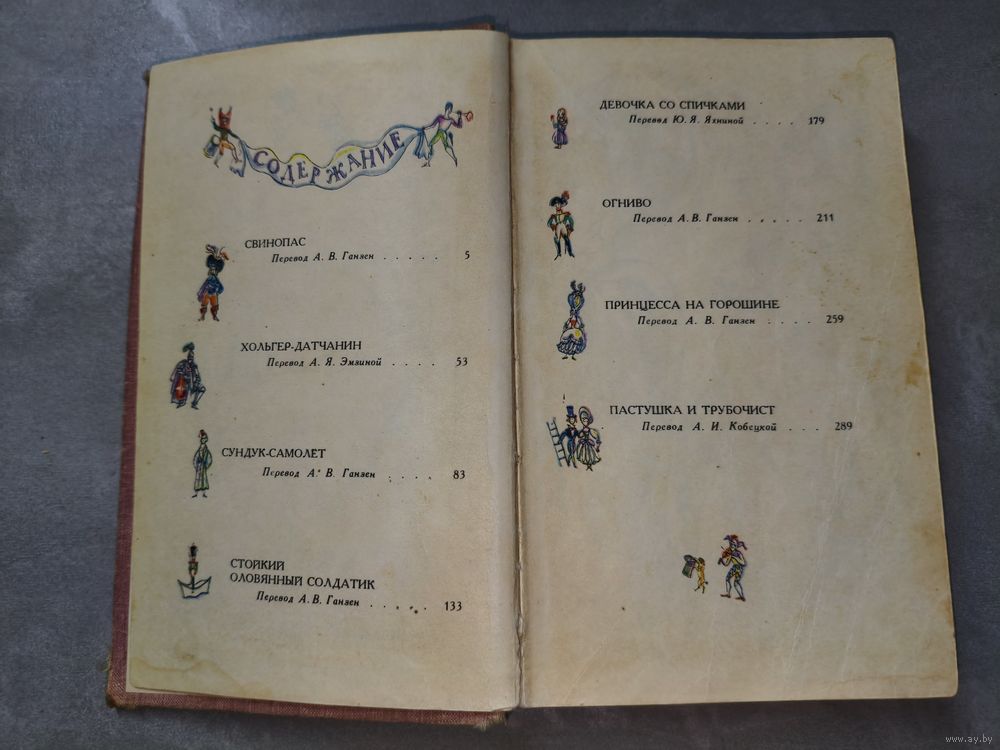 СОДЕРЖАНИЕ
СВИНОПАС
Перевод А. В. Ганзен . . . . . 5
ХОЛЬГЕР-ДАТЧАНИН
Перевод А. Я. Эмзиной . . . . 53
СУНДУК-САМОЛЕТ
Перевод А. В. Ганзен . . . . 83
СТОЙКИЙ
ОЛОВЯННЫЙ СОЛДАТИК
Перевод А. В. Ганзен . . . . . 133
ДЕВОЧКА СО СПИЧКАМИ
Перевод Ю. Я. Яхниной . . . . 179
ОГНИВО
Перевод А. В. Ганзен . . . . . 211
ПРИНЦЕССА НА ГОРОШИНЕ
Перевод А. В. Ганзен . . . . 259
ПАСТУШКА И ТРУБОЧИСТ
Перевод А. И. Кобецкой . . . 289
www.ay.by